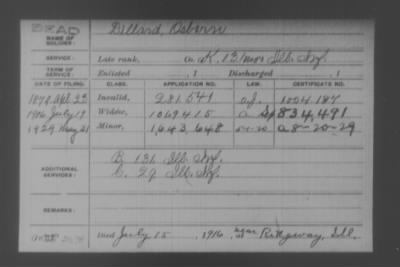 DEAD
NAME OF SOLDIER: Dillard, Osborn
SERVICE: Late rank, Co. K. 131 Ill. Inf.
TERM OF SERVICE: Enlisted , 1 Discharged , 1
DATE OF FILING. CLASS. APPLICATION NO. LAW. CERTIFICATE NO.
Invalid, 281.541 1004.187
1916 July 19 Widow, 1069415 834,491
1929 Minor, 1,643,648 a 8-20-29
ADDITIONAL SERVICES: B 131 Ill. Inf.
C. 29 Ill. Inf.
REMARKS:
Died July 15, 1916 Ridgway, Ill.